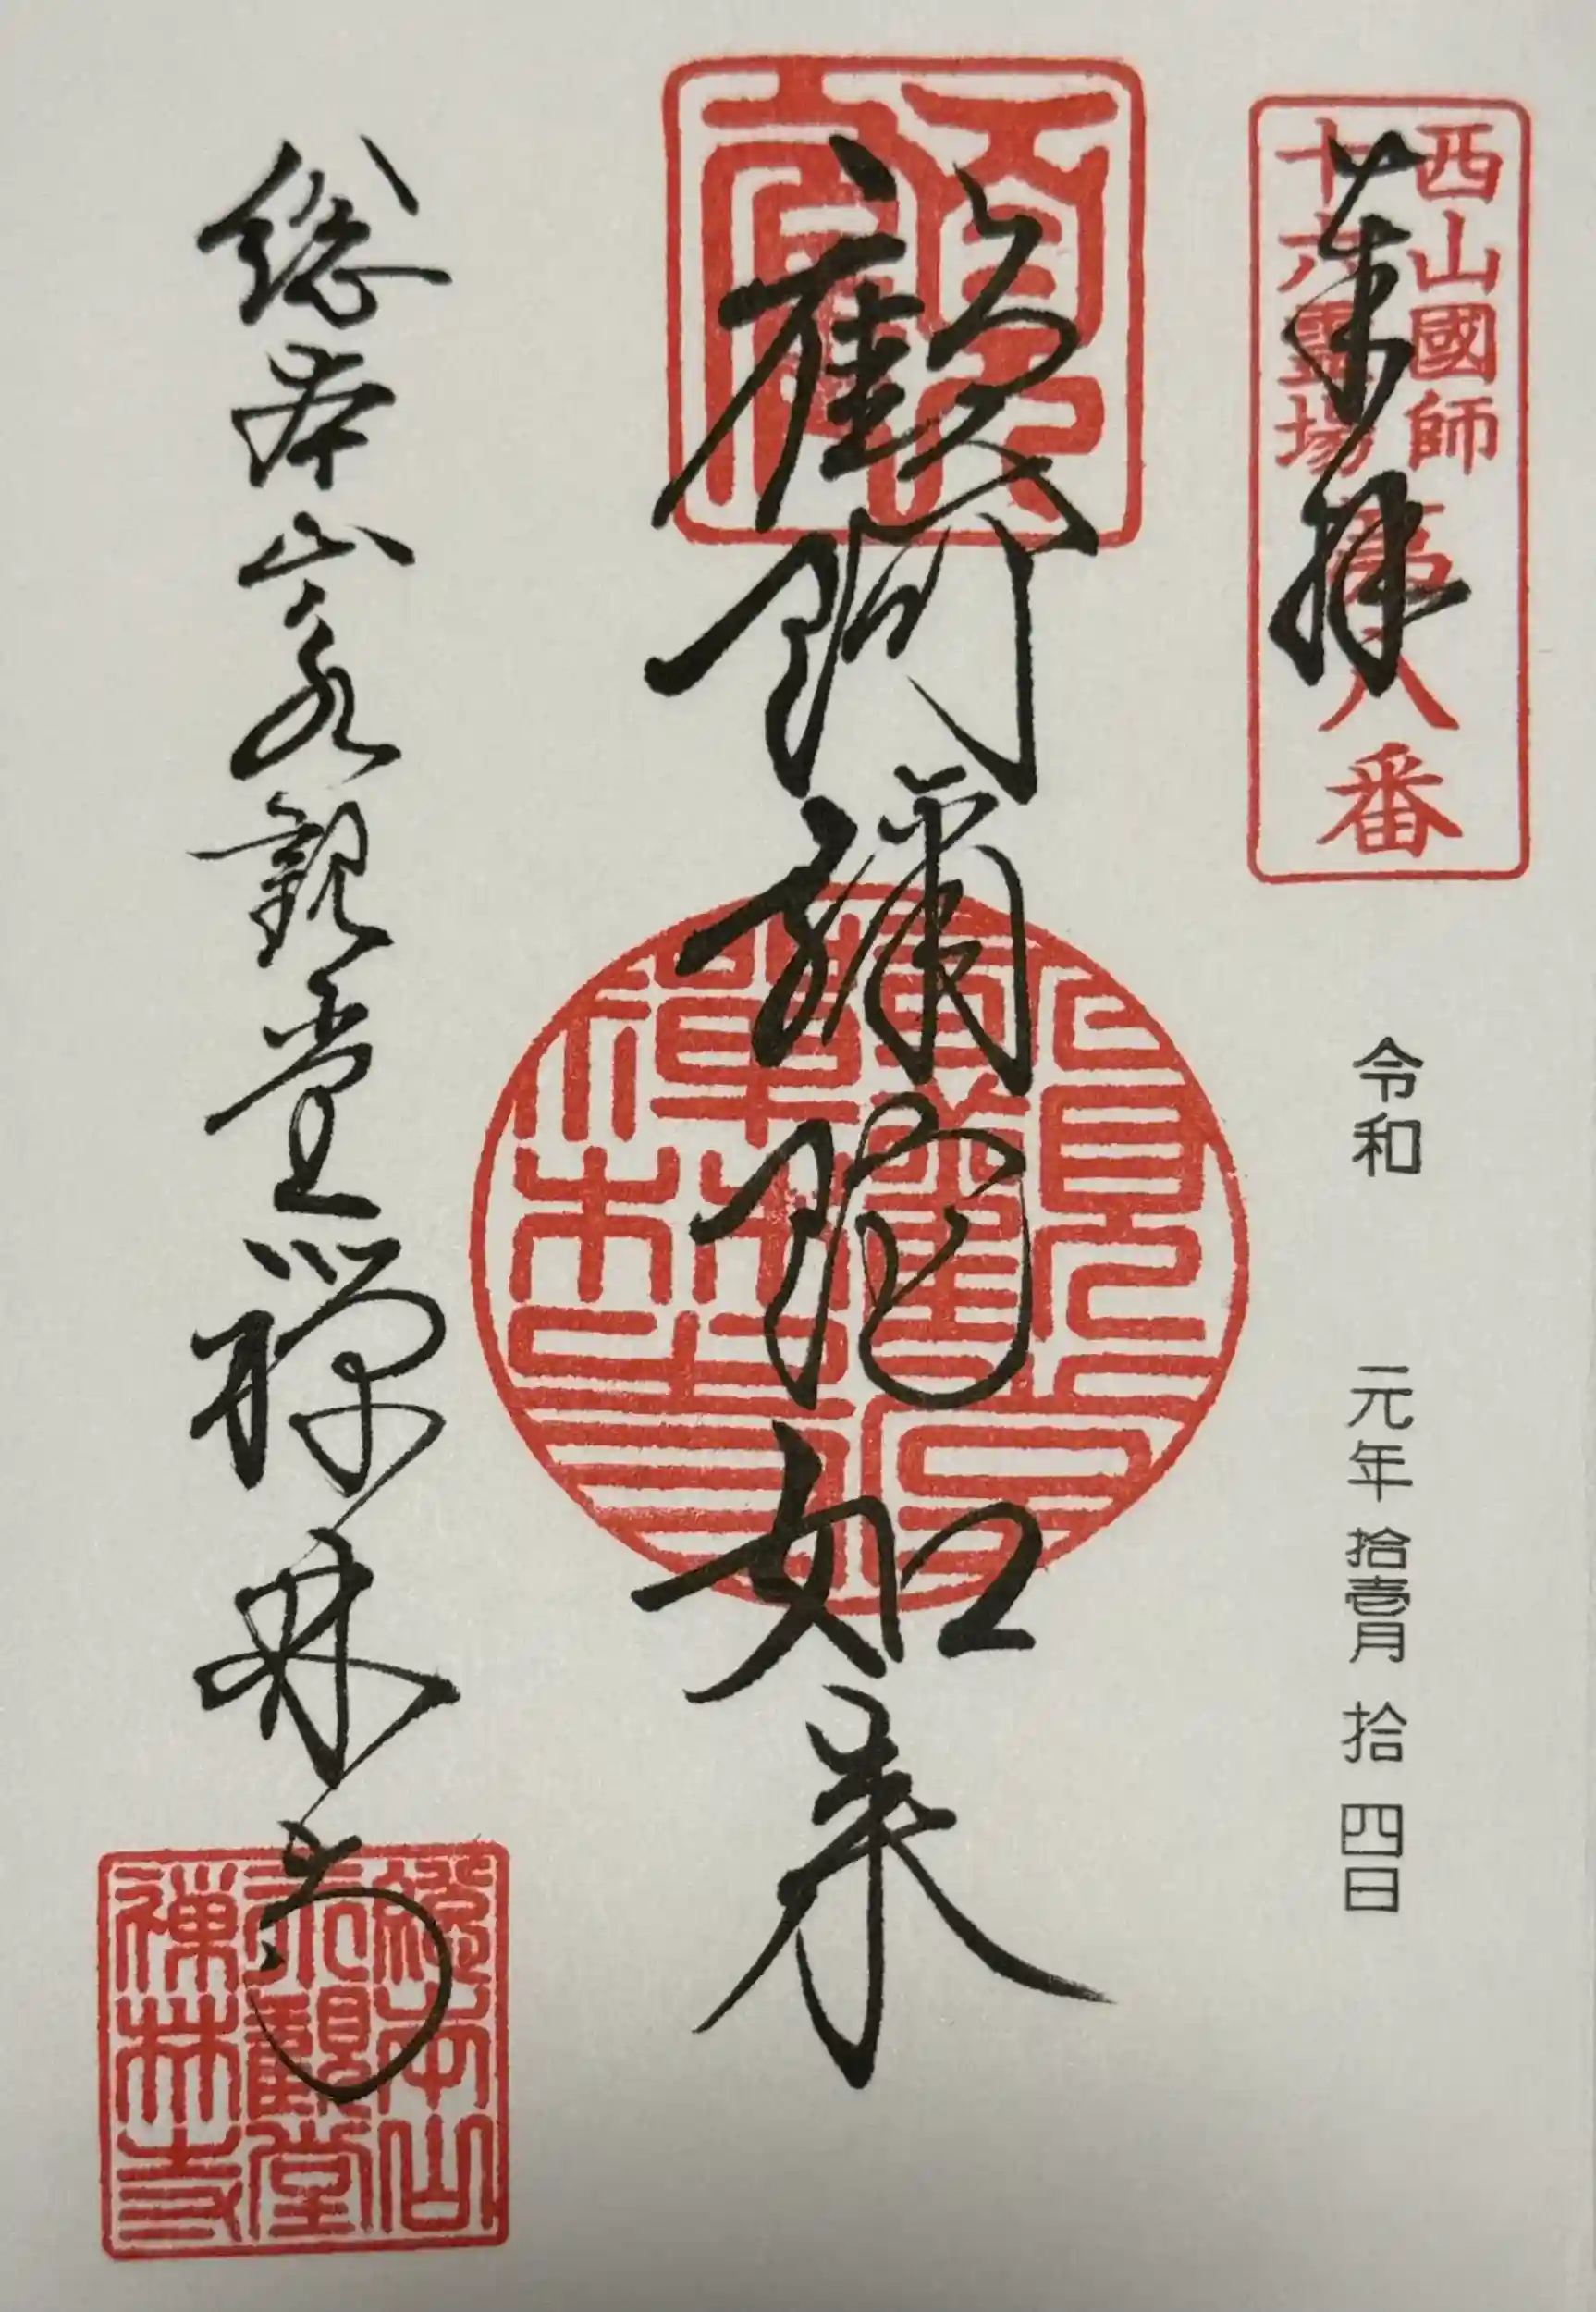 西山國師
十六霊場
第八番
奉拝
令和 元年 拾壹月 拾四日
顧阿彌陀如来
総本山永観堂禅林寺
總本山
永觀堂
禅林寺